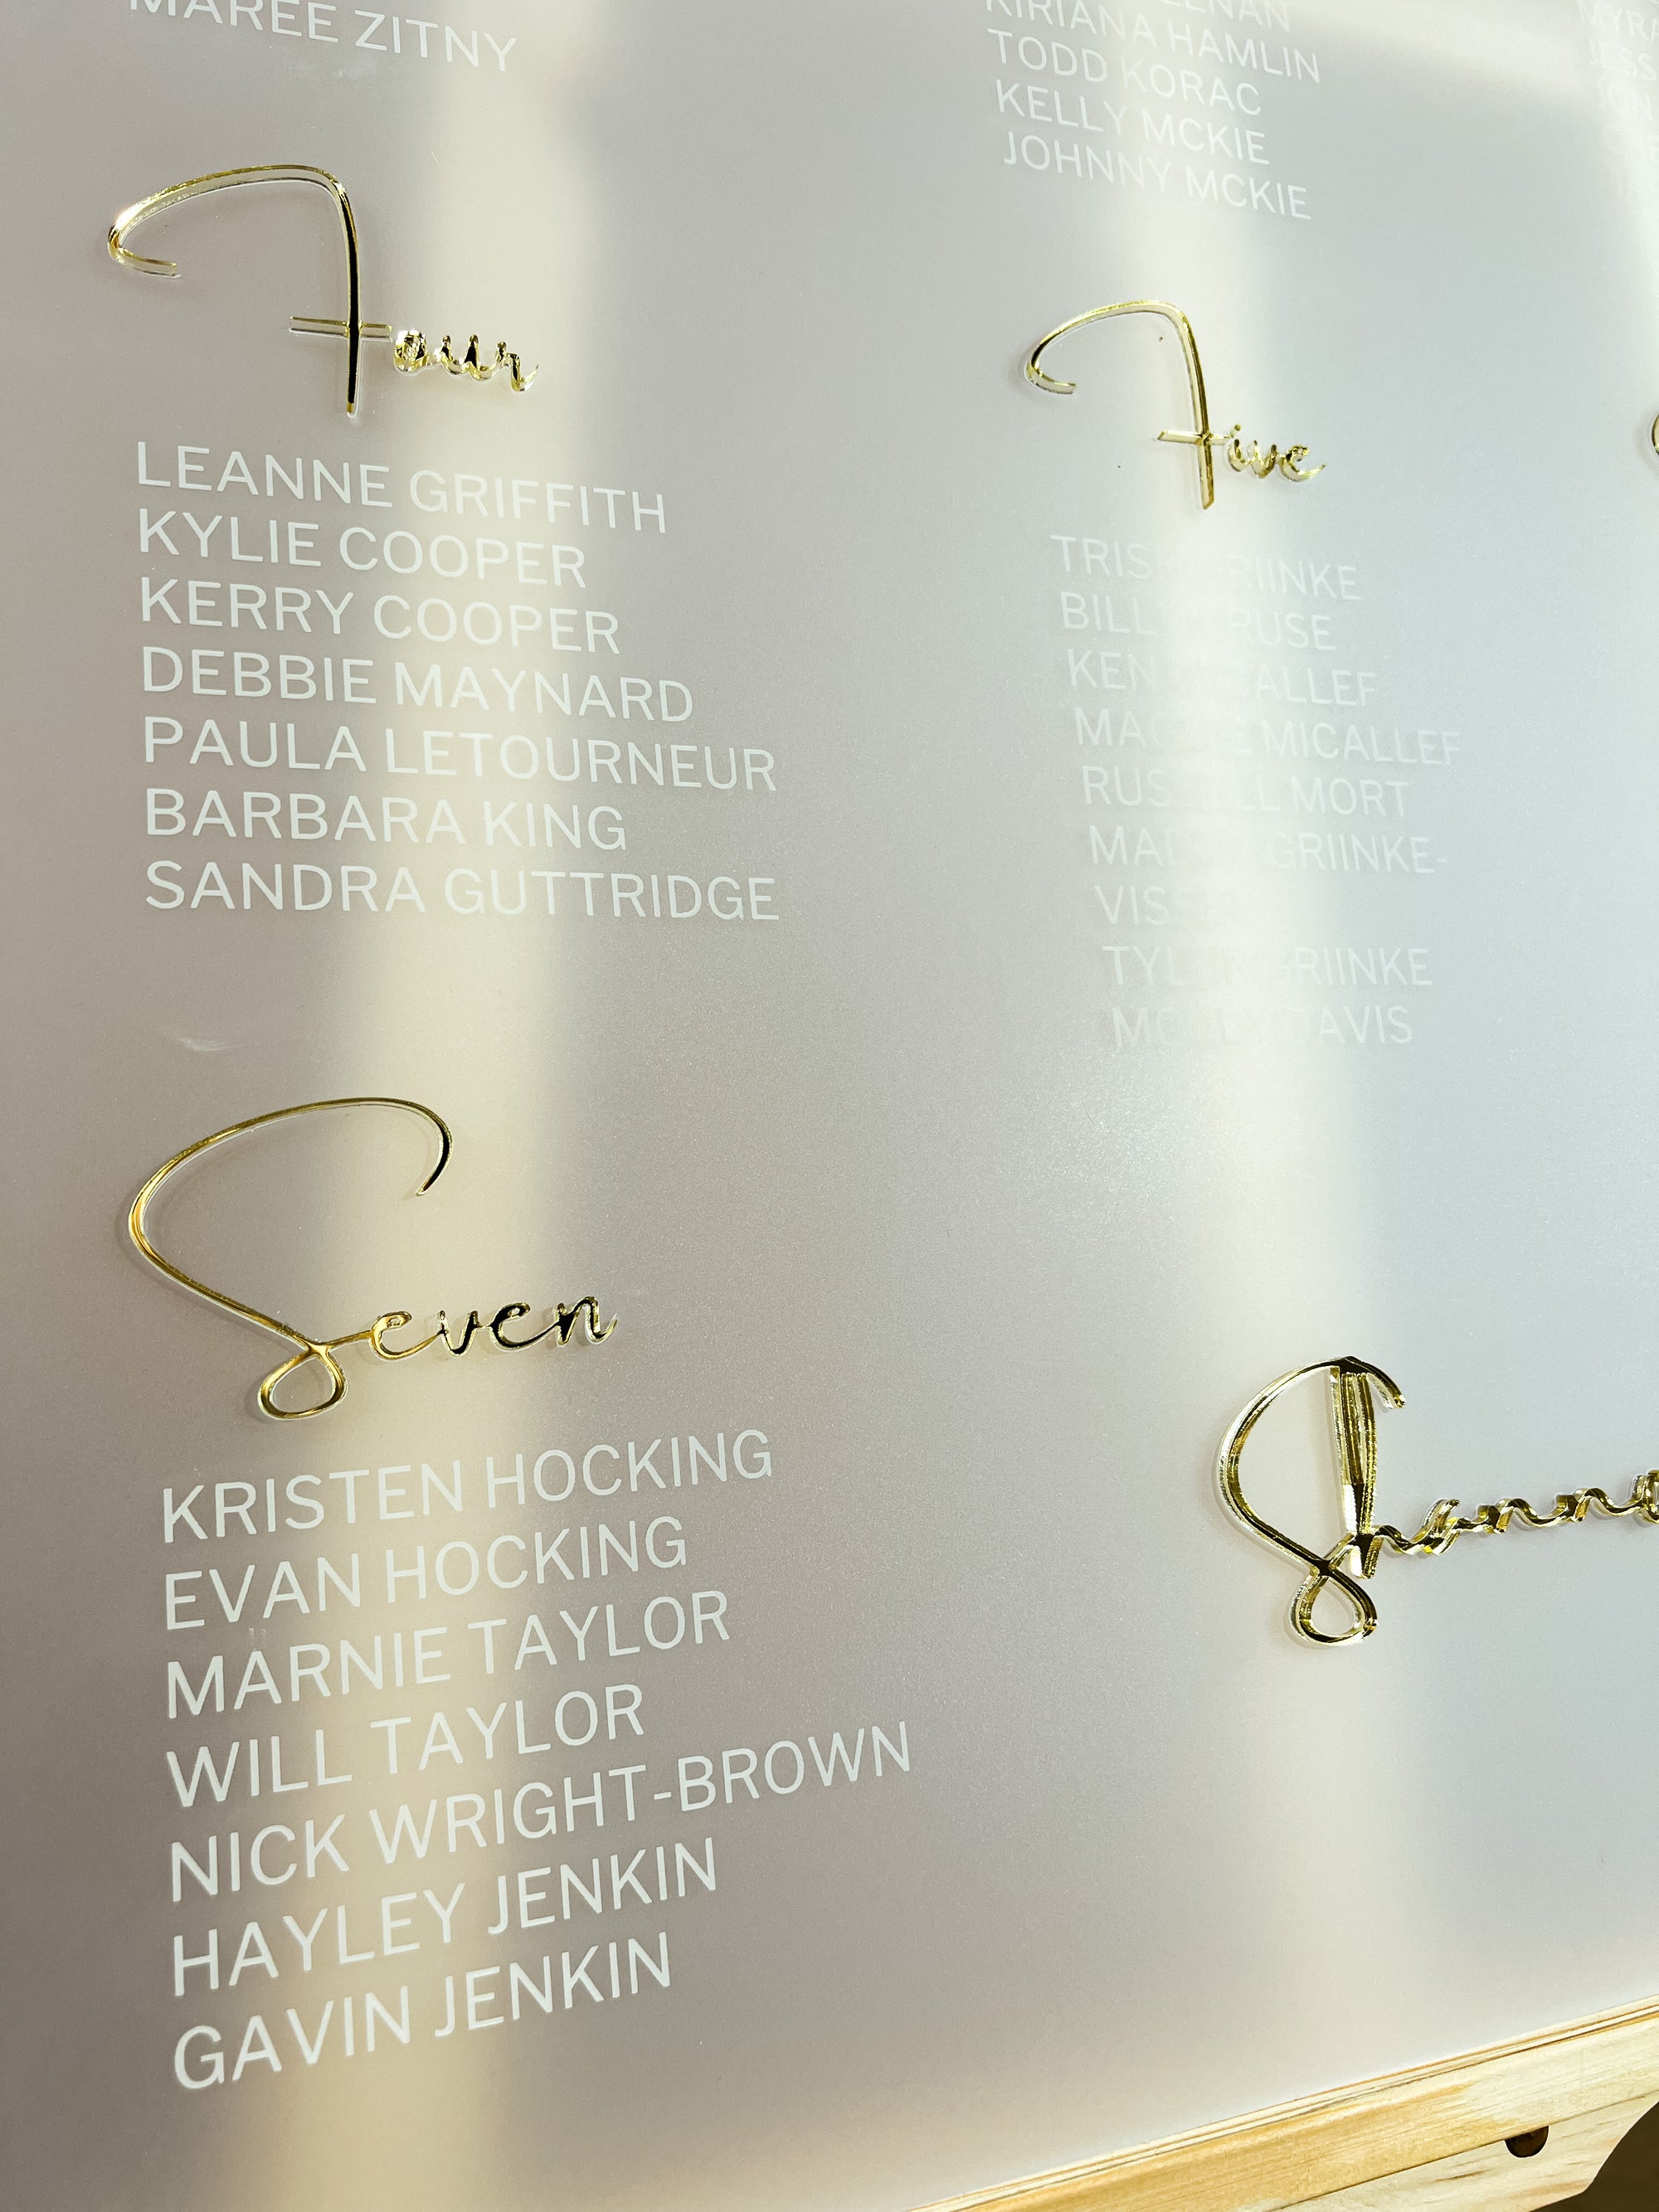 MAREE ZITNY
KIRIANA HAMLIN
TODD KORAC
KELLY MCKIE
JOHNNY MCKIE
Four
LEANNE GRIFFITH
KYLIE COOPER
KERRY COOPER
DEBBIE MAYNARD
PAULA LETOURNEUR
BARBARA KING
SANDRA GUTTRIDGE
Five
GRIINKE
KRUSE
MICALLEF
MICALLEF
RUSSELL MORT
GRIINKE-
TYLER GRIINKE
MOLLY DAVIS
Seven
KRISTEN HOCKING
EVAN HOCKING
MARNIE TAYLOR
WILL TAYLOR
NICK WRIGHT-BROWN
HAYLEY JENKIN
GAVIN JENKIN